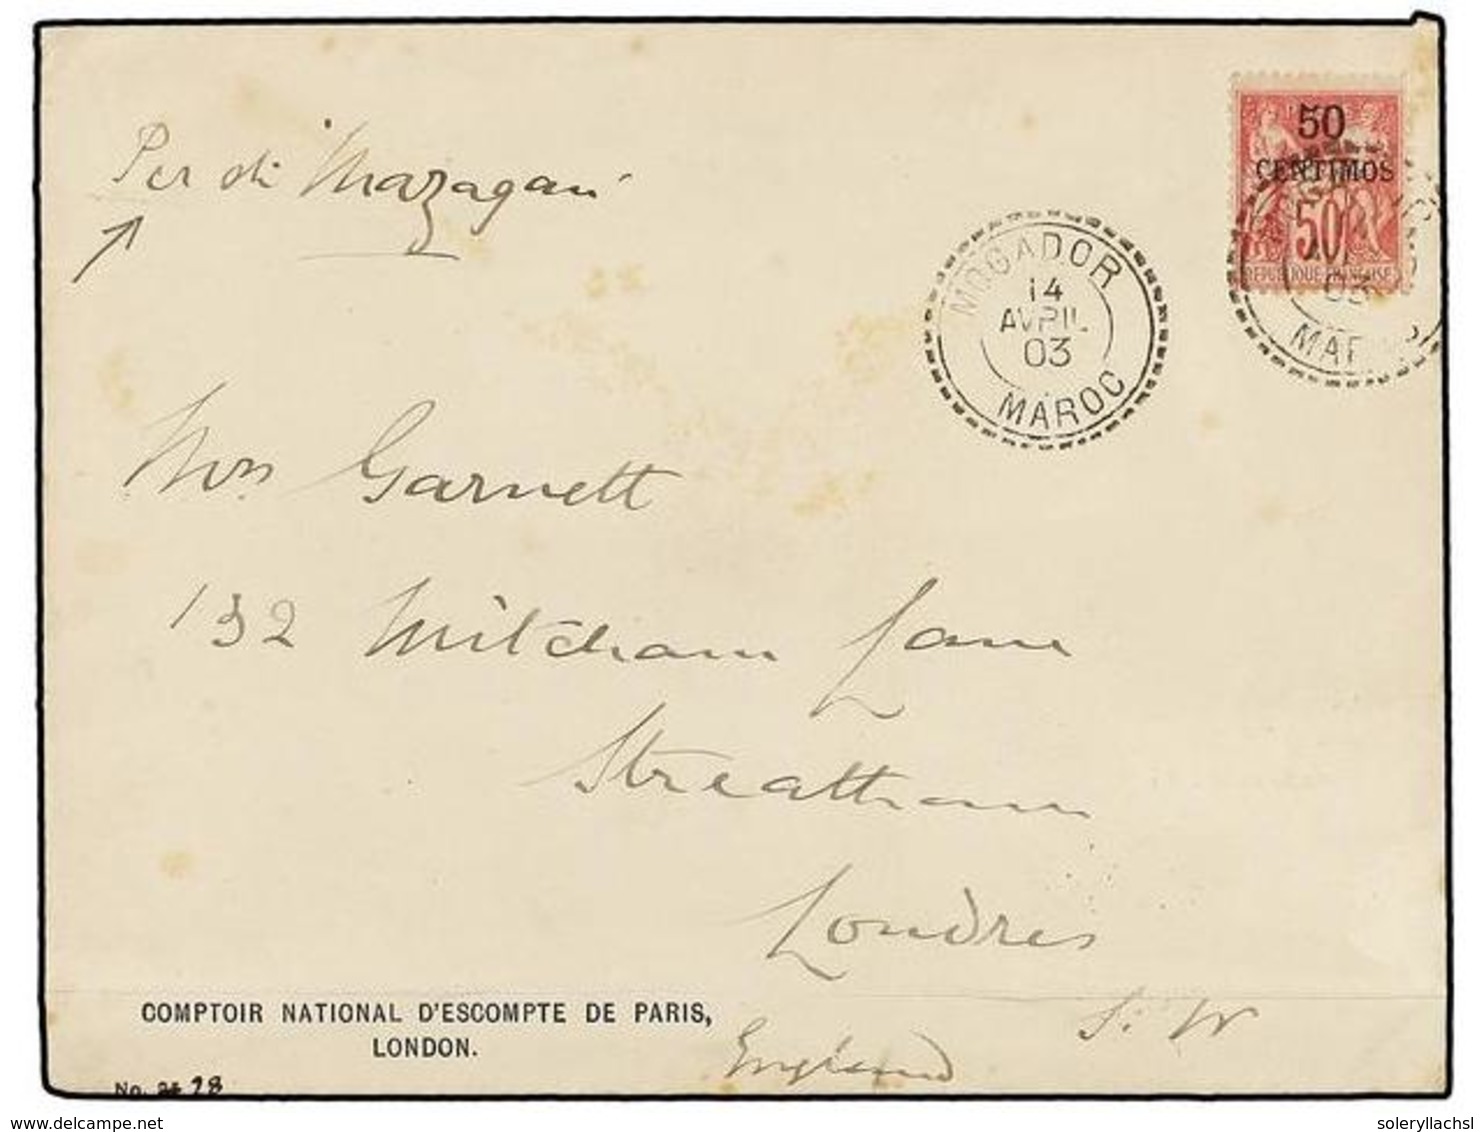 Per di Mazagan
50
CENTIMOS
50
REPUBLIQUE FRANÇAISE
MOGADOR
14
AVRIL
03
MAROC
03
MAR
Mrs Garnett
132 Mitcham Lane
Streatham
Londres
S. W
England
COMPTOIR NATIONAL D'ESCOMPTE DE PARIS,
LONDON.
No. 28
soleryllachsl